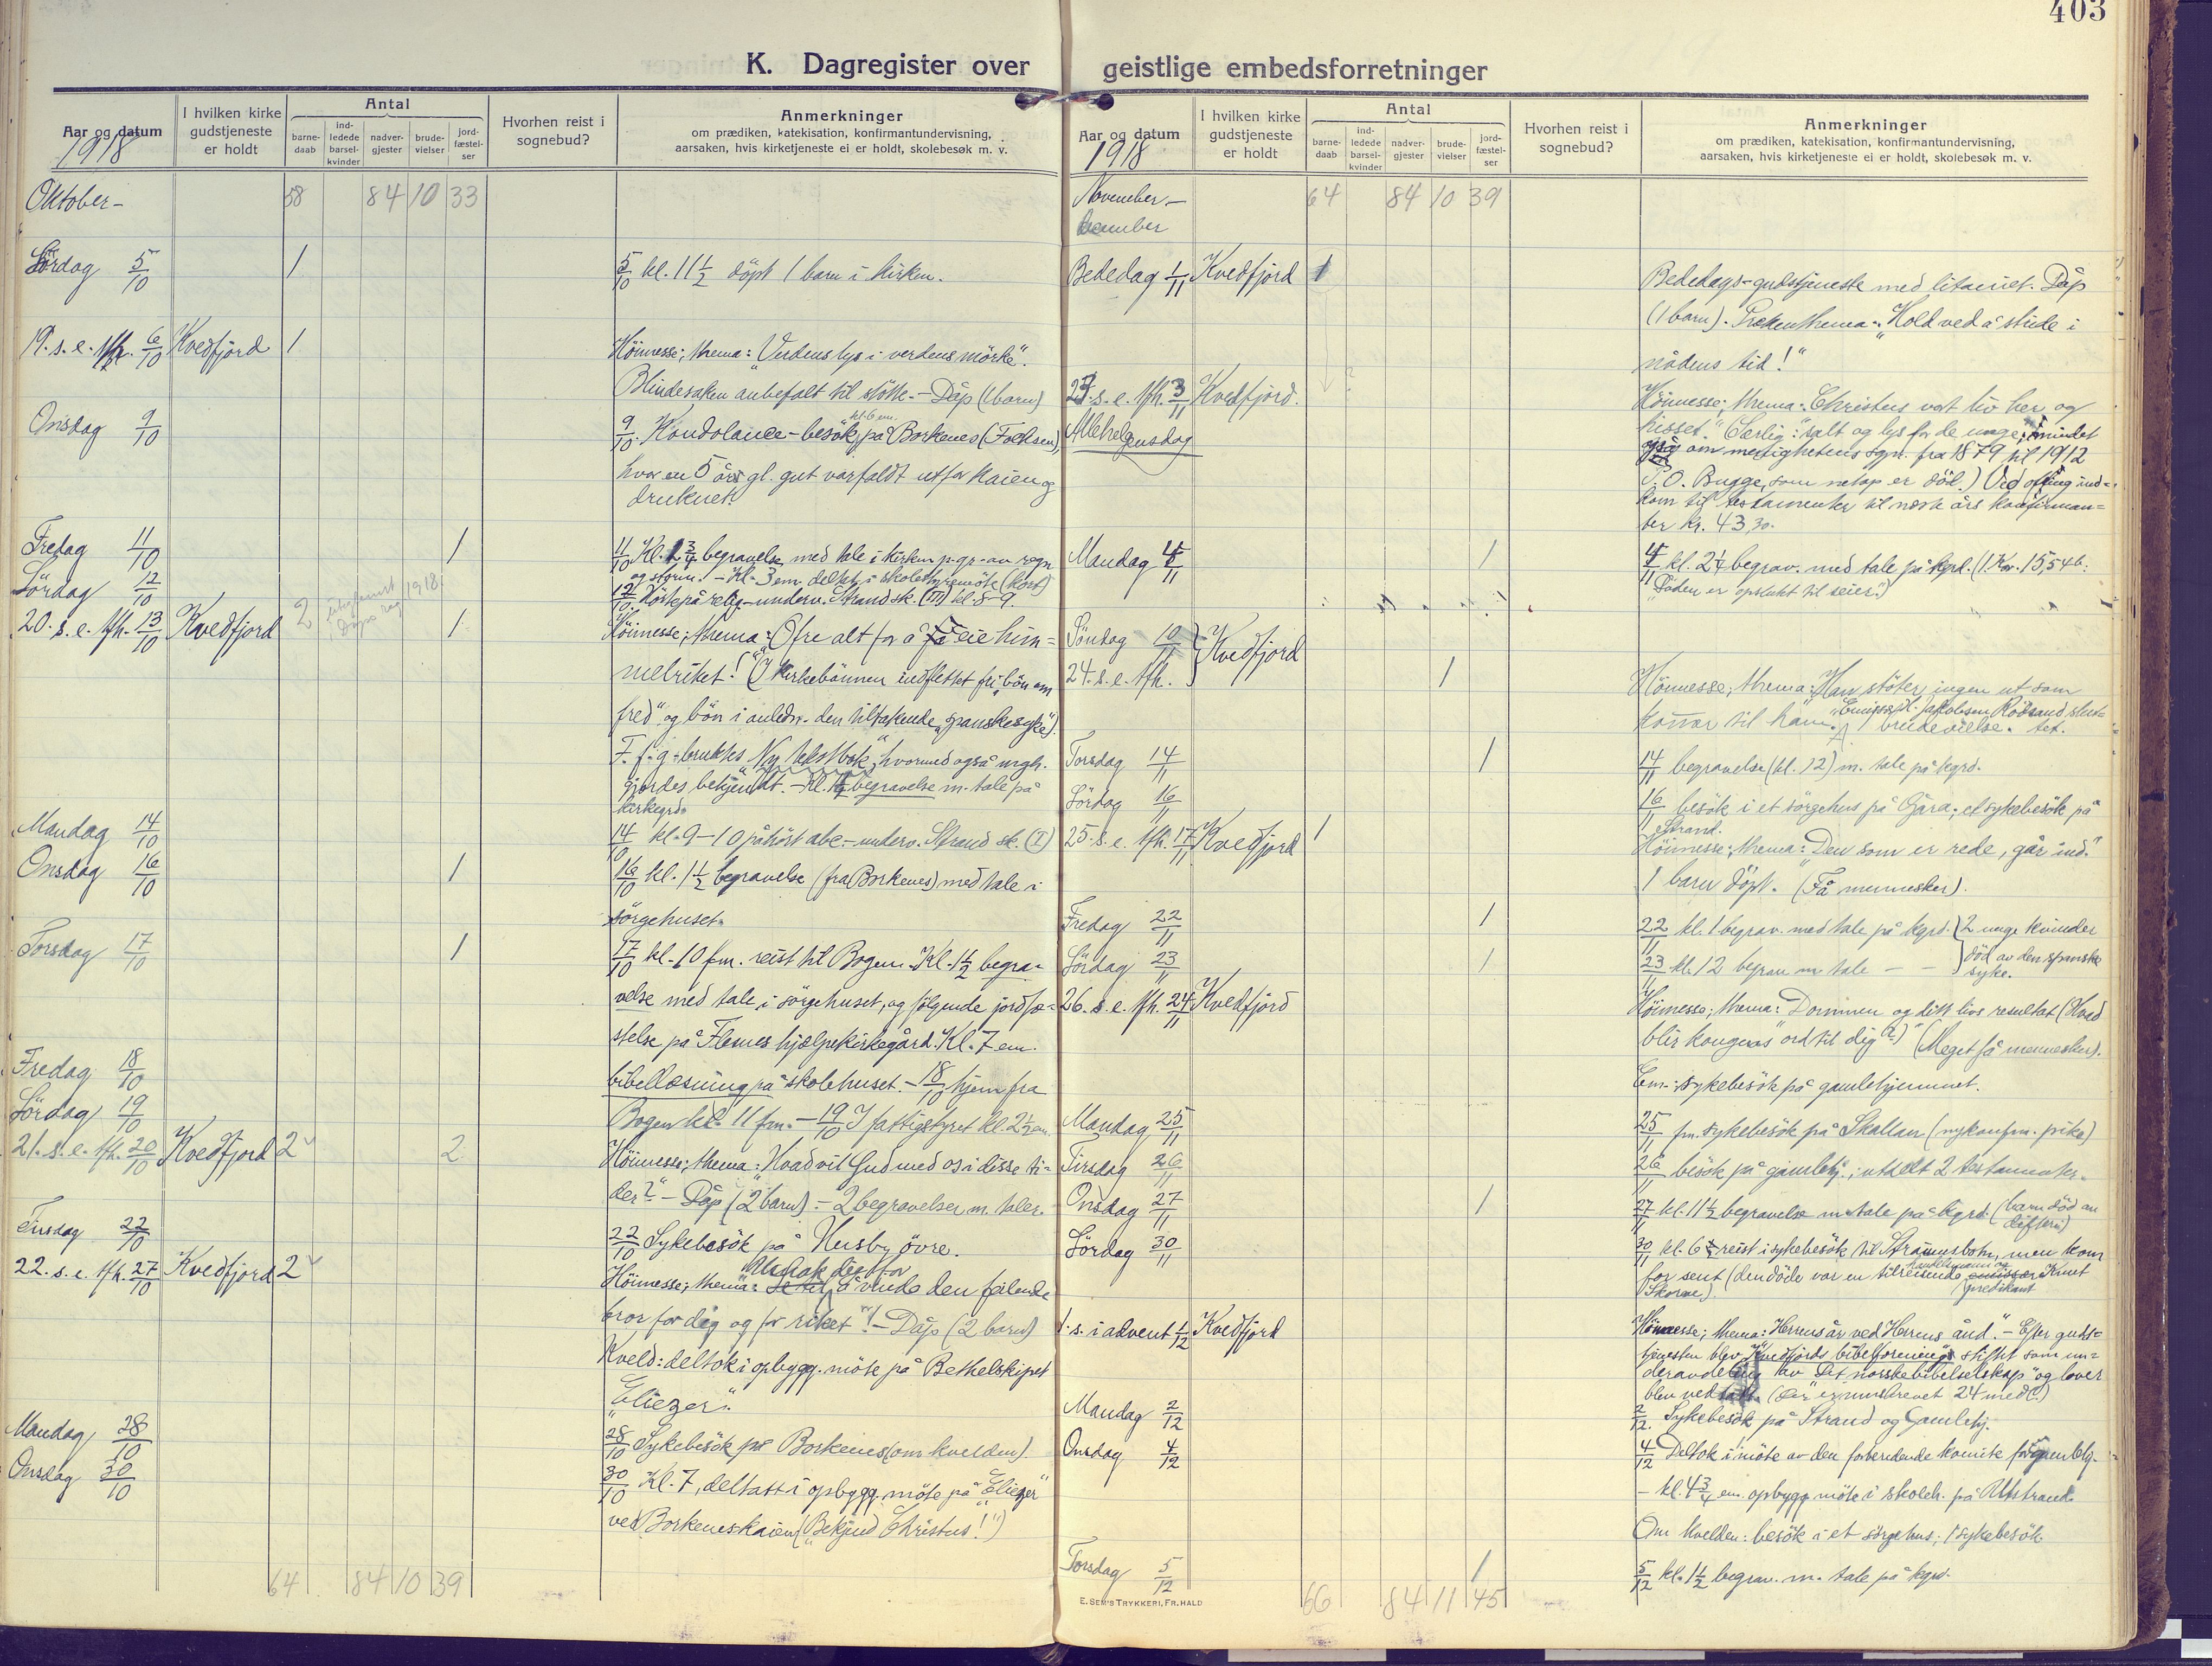 403
K. Dagregister over geistlige embedsforretninger
Aar og datum
1918
I hvilken kirke gudstjeneste er holdt
Antal
barne-daab
ind-ledede barsel-kvinder
nadver-gjester
brude-vielser
jord-fæstel-ser
Hvorhen reist i sognebud?
Anmerkninger
om prædiken, katekisation, konfirmantundervisning,
aarsaken, hvis kirketjeneste ei er holdt, skolebesøk m. v.
Oktober-
58 84 10 33
Lördag 5/10 1
5/10 kl. 11 1/2 döpt 1 barn i kirken.
19. s. e. tfh. 6/10 Kvedfjord 1
Höimesse; thema: "Verdens lys i verdens mörke".
Blindesaken anbefalt til stötte. - Dåp (1 barn)
Onsdag 9/10
9/10. Kondolance-besök kl. 6 em. på Borkenes (Fochsen),
hvor en 5 års gl. gut var faldt utfor kaien og
druknet.
Fredag 11/10 1
11/10 Kl. 1 3/4 begravelse med tale i kirken p. gr. av regn
og storm. - Kl. 3 em. deltat i skolestyremöte (kort)
Lördag 12/10
12/10. Hörte på relig.-underv. Strand sk. (III) kl. 8-9.
20. s. e. tfh. 13/10 Kvedfjord 2 1918 1
Höimesse; thema: "Ofre alt for å få eie him-
melriket!" (I kirkebönnen indflettet fri "bön om
fred" og bön i anledn. den tiltakende "spanskesyke").
F. f. g. bruktes "Ny tekstbok", hvormed også mgh.
gjordes bekjendt. - Kl. begravelse m. tale på
kirkegrd.
Mandag 14/10
14/10 kl. 9-10 påhört abc-underv. Strand sk. (I)
Onsdag 16/10 1
16/10 kl. 1 1/2 begravelse (fra Borkenes) med tale i
sörgehuset.
Torsdag 17/10 1
17/10 kl. 10 fm. reist til Bogen. Kl. 1 1/2 begra-
velse med tale i sörgehuset, og fölgende jordfæ-
stelse på Flesnes hjælpekirkegård. Kl. 7 em.
Fredag 18/10
bibellæsning på skolehuset. - 18/10 hjem fra
Lördag 19/10
Bogen kl. 11 fm. - 19/10 I fattigstyret kl. 2 1/2 em.
21. s. e. tfh. 20/10 Kvedfjord 2 2
Höimesse; thema: "Hvad vil Gud med os i disse ti-
der?" - Dåp (2 barn). - 2 begravelser m. taler.
Tirsdag 22/10
22/10 Sykebesök på Husby övre.
22. s. e. tfh. 27/10 Kvedfjord 2
Höimesse; thema: å vinde den feilende
bror for dig og for riket"! - Dåp (2 barn)
Kveld: deltok i opbygg. möte på Bethelskipet
"Eliezer".
Mandag 28/10
28/10 Sykebesök på Borkenes (om kvelden).
Onsdag 30/10
30/10 Kl. 7, deltatt i opbygg. möte på "Eliezer"
ved Borkeneskaien ("Bekjend Christus!")
64 84 10 39
Aar og datum
1918
I hvilken kirke gudstjeneste er holdt
Antal
barne-daab
ind-ledede barsel-kvinder
nadver-gjester
brude-vielser
jord-fæstel-ser
Hvorhen reist i sognebud?
Anmerkninger
om prædiken, katekisation, konfirmantundervisning,
aarsaken, hvis kirketjeneste ei er holdt, skolebesøk m. v.
November -
december
64 84 10 39
Bededag 1/11 Kvedfjord 1
Bededags-gudstjeneste med litaniet. Dåp
(1 barn). Prekenthema: "Hold ved å stride i
nådens tid!"
23. s. e. tfh. 3/11 Kvedfjord.
Allehelgensdag
Höimesse; thema: "Christus vort liv her og
hisset." (Særlig: salt og lys for de unge; mindet
også om menighetens sgpr. fra 1879 til 1912
P. O. Bugge, som netop er död.) Ved ofring ind-
kom til testamenter til næste års konfirman-
ter kr. 43,30.
Mandag 4/11 1
4/11 kl. 2 1/4 begrav. med tale på kgrd. (1. Kor. 15,54b:
"Döden er opslukt til seier")
Söndag 10/11
24. s. e. tfh.
Kvedfjord 1
Höimesse; thema: "Han stöter ingen ut som
kommer til ham." Jakobsen Rödsand slut-
1 brudevielse. tet.
Torsdag 14/11 1
14/11 begravelse (kl. 12) m. tale på kgrd.
Lördag 16/11
16/11 besök i et sörgehus på Gåra; et sykebesök på
Strand.
25. s. e. tfh. 17/11 Kvedfjord 1
Höimesse; thema: "Den som er rede, går ind."
1 barn döpt. (Få mennesker).
Fredag 22/11 1
22/11 kl. 1 begrav. med tale på kgrd. } 2 unge kvinder
Lördag 23/11 1
23/11 kl. 12 begrav. m. tale — — } död av den spanske
syke.
26. s. e. tfh. 24/11 Kvedfjord
Höimesse; thema: "Dommen og ditt livs resultat (Hvad
blir kongens ord til dig?)" (Meget få mennesker).
Em.: sykebesök på gamlehjemmet.
Mandag 25/11
25/11 fm. sykebesök på Skallan (nykonfm. pike)
Tirsdag 26/11
26/11 besök på gamlehj.; utdelt 2 testamenter.
Onsdag 27/11 1
27/11 kl. 11 1/2 begravelse m. tale på kgrd. (barn död av
difteri)
Lördag 30/11
30/11 kl. 6 reist i sykebesök til Straumsbotn, men kom
for sent (den döde var en tilreisende handelsmann og predikant Knut
Skorne).
1. s. i advent 1/12 Kvedfjord
Höimesse; thema: "Herrens år ved Herrens ånd." - Efter guds-
tjenesten blev "Kvedfjords bibelforening" stiftet som un-
deravdeling av "Det norske bibelselskap" og lover
blev vedtatt.
Mandag 2/12
2/12. Sykebesök på Strand og Gamlehj.
Onsdag 4/12
4/12 Deltok i möte av den forberedende komite
- kl. 4 3/4 em. opbygg. möte i skoleh. på Utstrand.
Om kvelden: besök i et sörgehus; 1 sykebesök.
Torsdag 5/12 1
5/12 kl. 1 1/2 begrav. m. tale på kgrd.
66 84 11 45
E. SEM'S TRYKKERI, FR.HALD